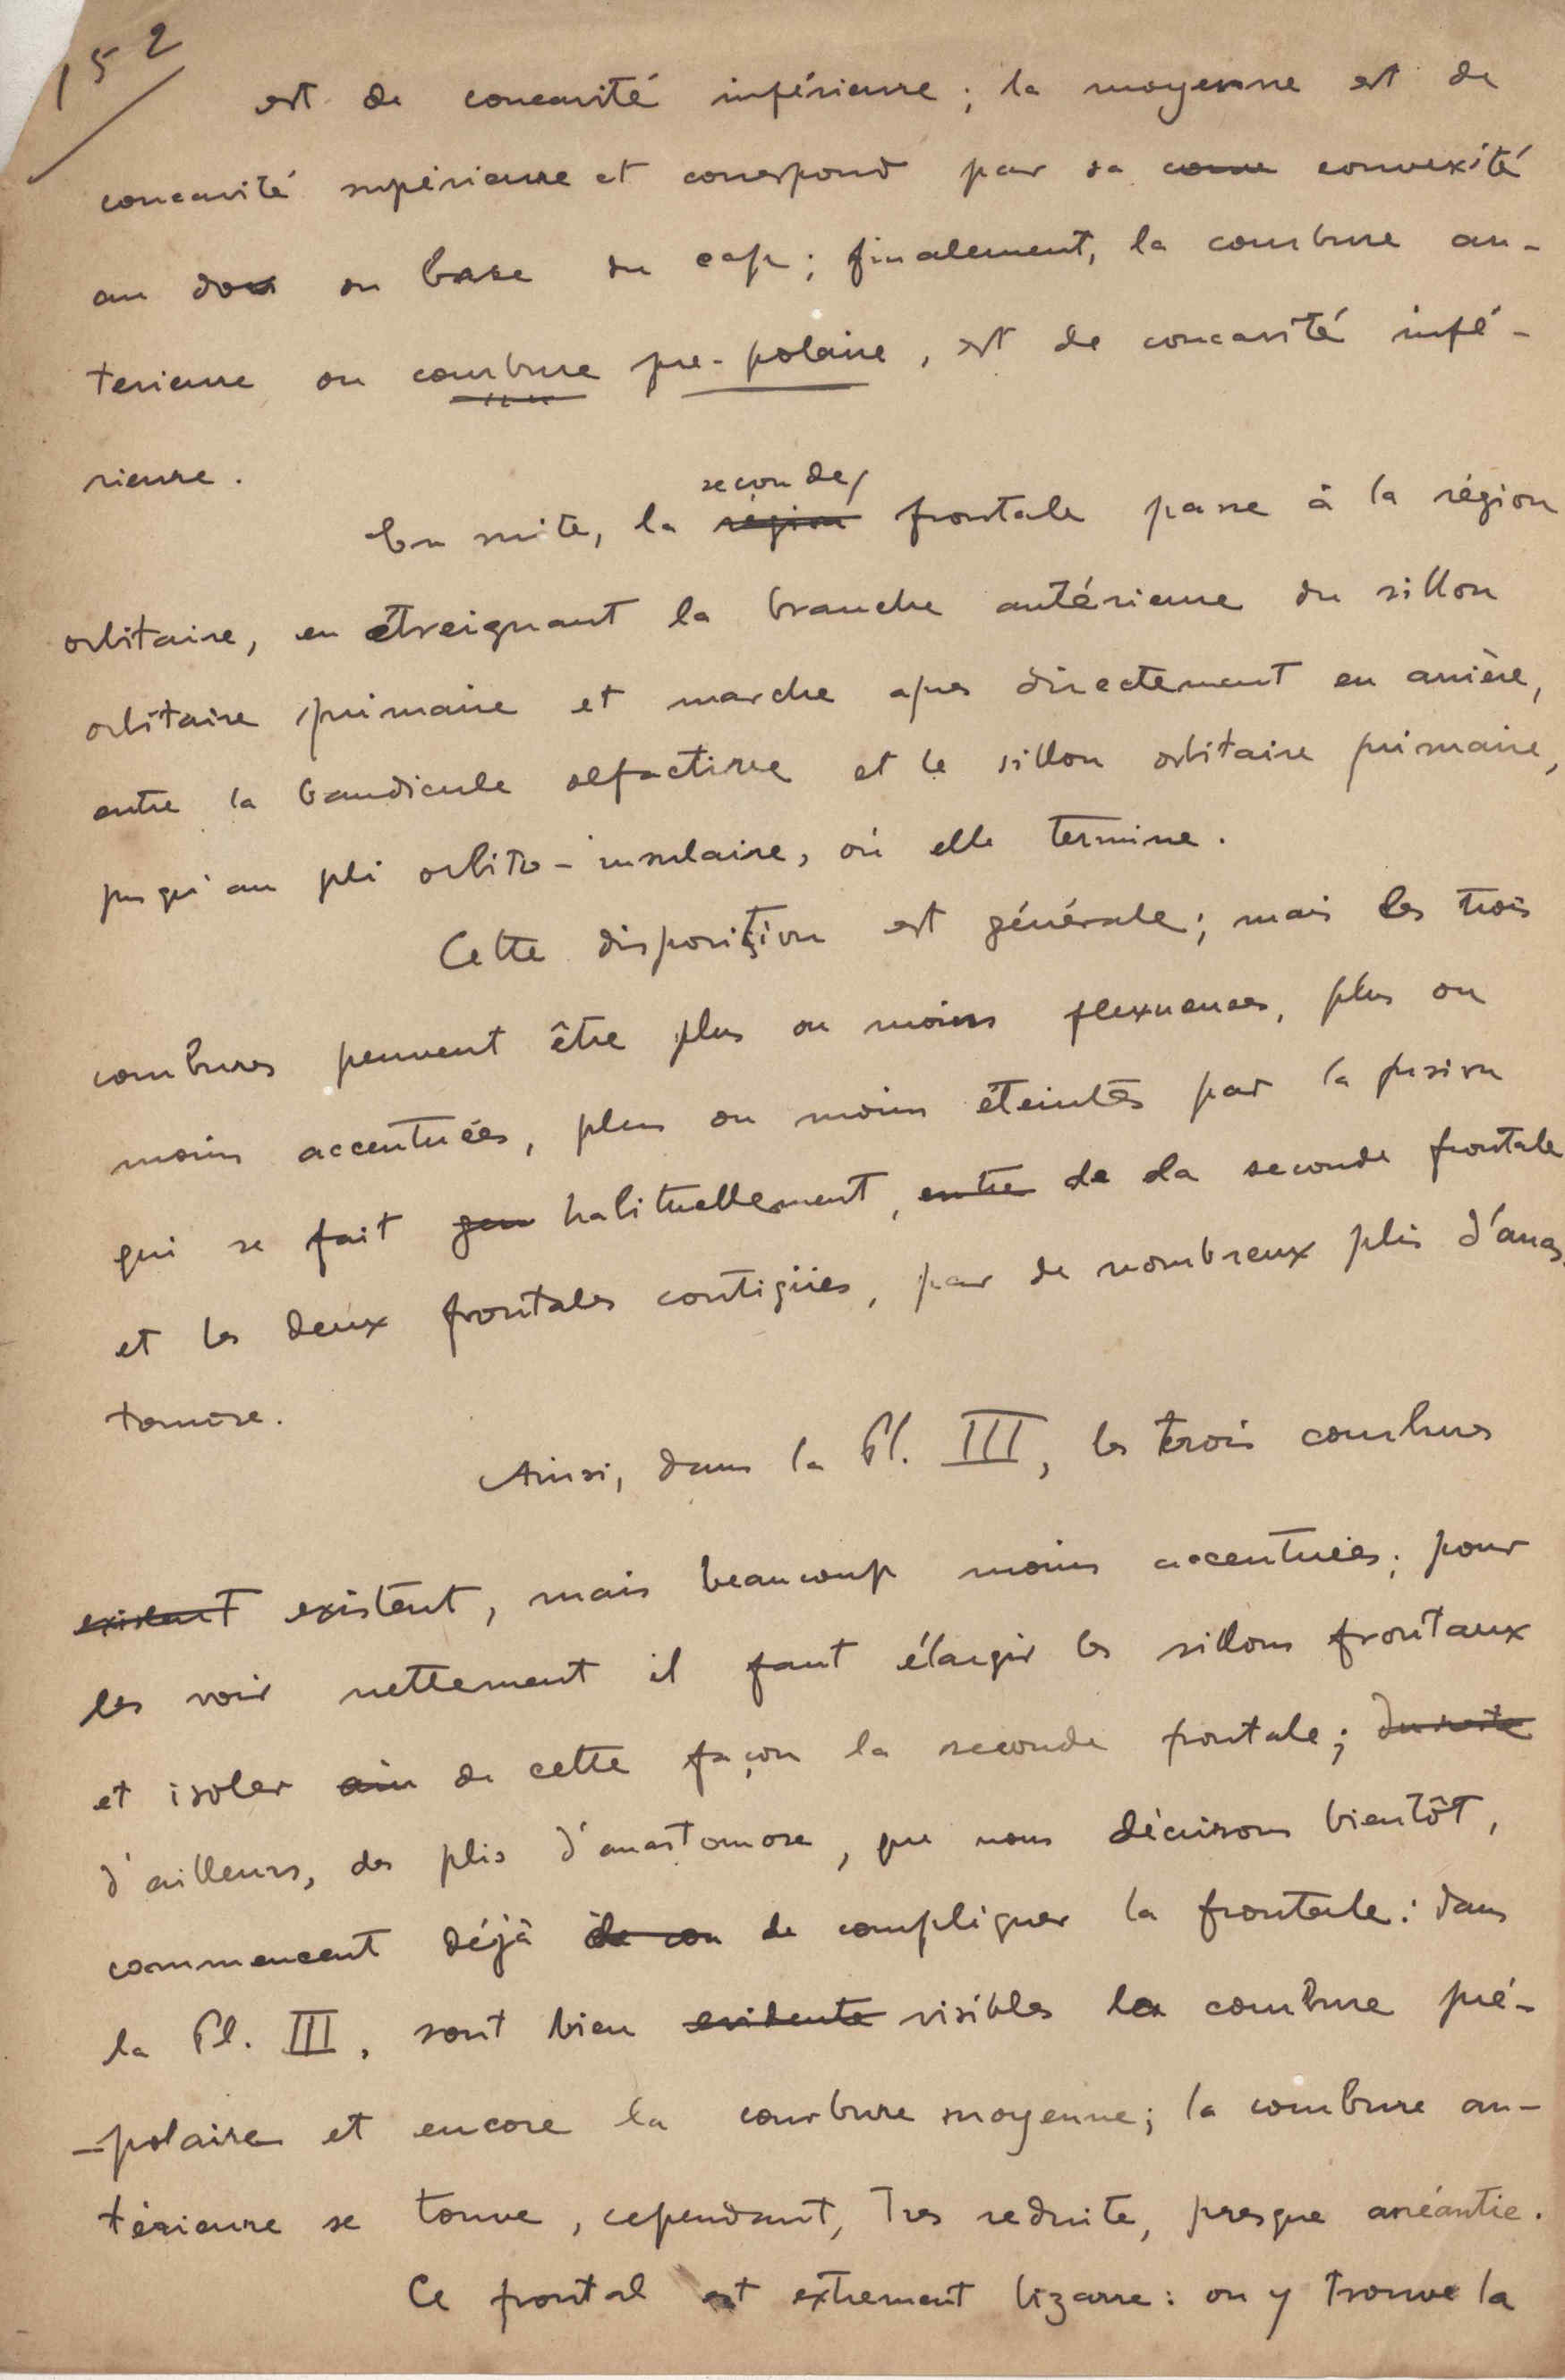 152
est de concavité inférieure; la moyenne est de
concavité supérieure et correspond par sa conve convexité
au dos ou base du cap; finalement, la courbure an-
terieure ou courbure pre-polaire, est de concavité infé-
rieure.
seconde
En suite, la région frontale passe à la région
orbitaire, en étreignant la branche antérieure du sillon
orbitaire primaire et marche apres directement en arrière,
entre la bandicule olfactive et le sillon orbitaire primaire,
jusqu'au pli orbito-insulaire, où elle termine.
Cette disposition est générale; mais les trois
courbures peuvent être plus ou moins flexueuses, plus ou
moins accentuées, plus ou moins éteintes par la fusion
qui se fait gen habituellement, entre de la seconde frontale
et les deux frontales contigües, par de nombreux plis d'anas-
tomose.
Ainsi, dans la Pl. III, les trois courbures
existent existent, mais beaucoup moins accentuées; pour
les voir nettement il faut élargir les sillons frontaux
et isoler ain de cette façon la seconde frontale; du reste
d'ailleurs, des plis d'anastomose, que nous décrirons bientôt,
commencent déjà de con de compliquer la frontale: dans
la Pl. III, sont bien evidente visibles la courbure pré-
-polaire et encore la courbure moyenne; la courbure an-
térieure se touve, cependant, tres reduite, presque anéantie.
Ce frontal est extrement bizarre: on y trouve la